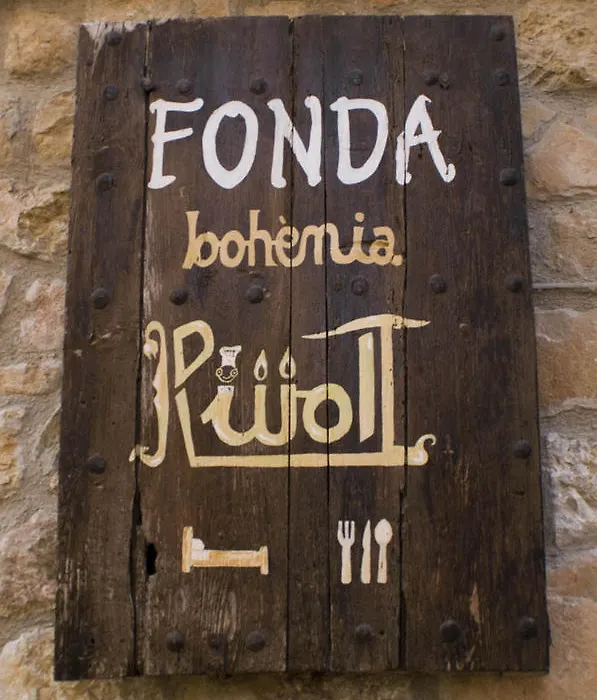 FONDA
bohèmia.
Riüot